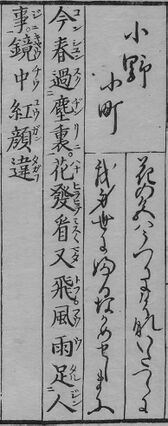 小野
小町
花の色はうつりにけりないたつらに
我身世にふるなかめせしまに
今春過塵裏花發看又飛風雨足人
事鏡中紅顔違